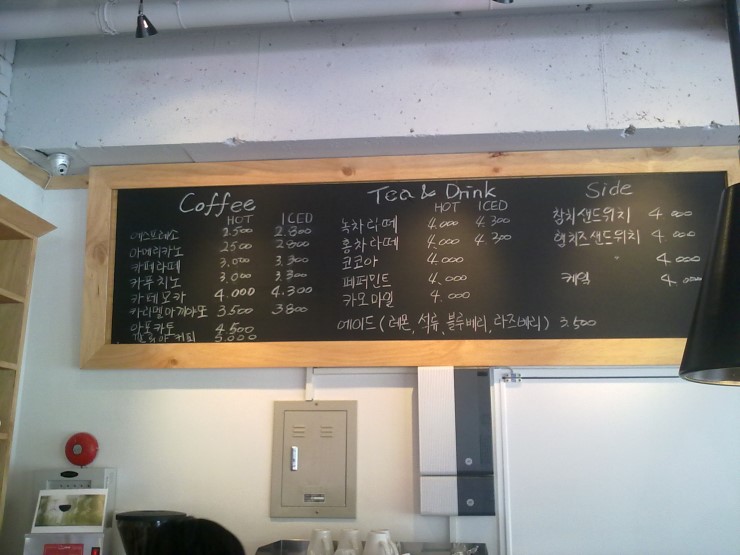 Coffee
HOT ICED
에스프레소 2.500 2.800
아메리카노 2500 2800
카페라떼 3.000 3.300
카푸치노 3.000 3.300
카페모카 4.000 4.300
카라멜마끼아또 3500 3800
아포카토 4500
커피 5.000
Tea & Drink
HOT ICED
녹차라떼 4.000 4.300
홍차라떼 4.000 4.300
코코아 4.000
페퍼민트 4.000
카모마일 4.000
에이드 (레몬, 석류, 블루베리, 라즈베리) 3.500
Side
참치샌드위치 4.000
햄치즈샌드위치 4.000
" 4.000
케익 4.000